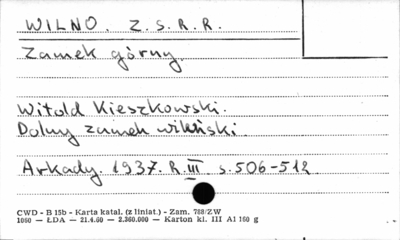 WILNO. Z.S.R.R.
Zamek górny.
Witold Kieszkowski.
Dolny zamek wileński.
Arkady. 1937. R.III s.506-512
CWD - B 15b - Karta katal. (z liniat.) - Zam. 788/ZW
1060 — ŁDA — 21.4.60 — 2,360.000 — Karton kl. III A1 160 g